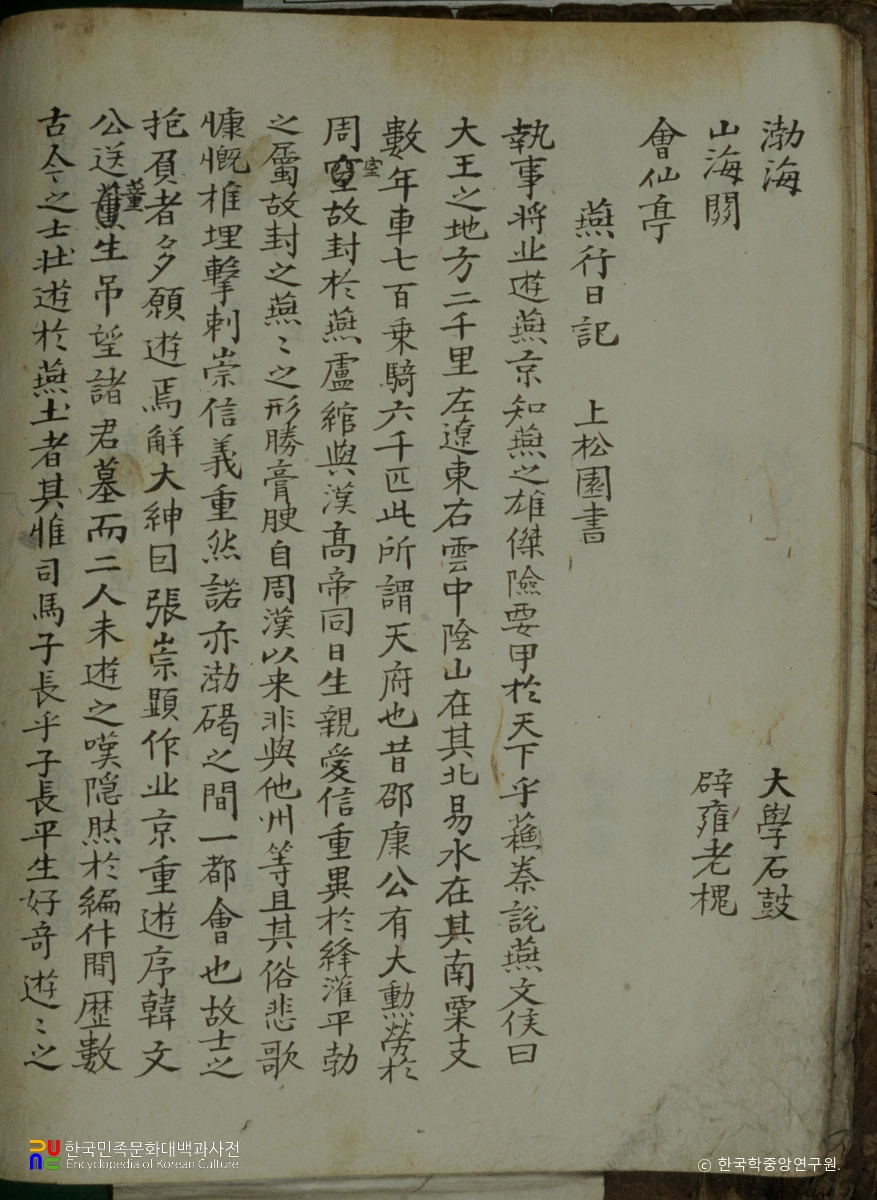 渤海 大學石鼓
山海關 辟雍老槐
會仙亭
燕行日記 上松園書
執事將北遊燕京知燕之雄傑險要甲於天下乎蘓秦說燕文侯曰
大王之地方二千里左遼東右雲中陰山在其北易水在其南粟支
數年車七百乘騎六千匹此所謂天府也昔邵康公有大勲勞於
周室故封於燕盧綰與漢高帝同日生親愛信重異於絳灌平勃
之屬故封之燕〻之形勝膏腴自周漢以来非與他州等且其俗悲歌
慷慨椎埋擊刺崇信義重然諾亦渤碣之間一都會也故士之
抱負者多願遊焉觧大紳因張崇顯作北京重遊序韓文
公送董生吊望諸君墓而二人未遊之嘆隱然於編什間歴數
古今之士壯遊於燕土者其惟司馬子長乎子長平生好奇遊〻之
한국민족문화대백과사전
Encyclopedia of Korean Culture
ⓒ 한국학중앙연구원.